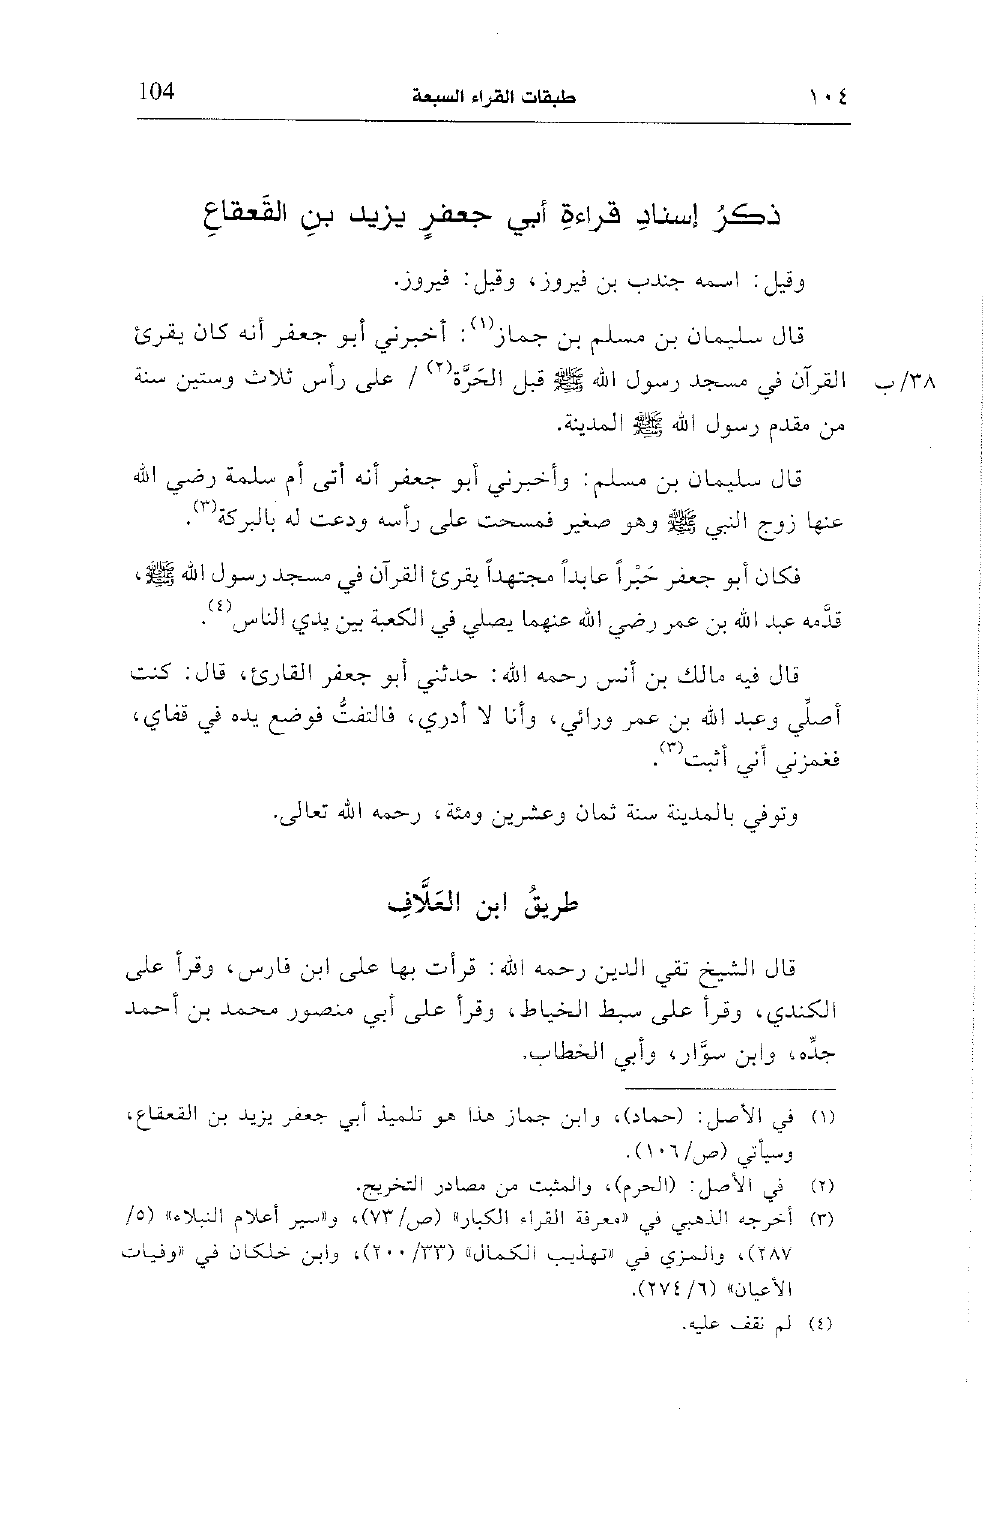 ١٠٤ طبقات القراء السبعة 104
ذكرُ إسنادِ قراءةِ أبي جعفرٍ يزيد بنِ القَعقاعِ
وقيل: اسمه جندب بن فيروز، وقيل: فيروز.
قال سليمان بن مسلم بن جماز(١): أخبرني أبو جعفر أنه كان يقرئ
٣٨/ب القرآن في مسجد رسول الله ﷺ قبل الحَرَّة(٢) / على رأس ثلاث وستين سنة
من مقدم رسول الله ﷺ المدينة.
قال سليمان بن مسلم: وأخبرني أبو جعفر أنه أتى أم سلمة رضي الله
عنها زوج النبي ﷺ وهو صغير فمسحت على رأسه ودعت له بالبركة(٣).
فكان أبو جعفر حَبْراً عابداً مجتهداً يقرئ القرآن في مسجد رسول الله ﷺ،
قدَّمه عبد الله بن عمر رضي الله عنهما يصلي في الكعبة بين يدي الناس(٤).
قال فيه مالك بن أنس رحمه الله: حدثني أبو جعفر القارئ، قال: كنت
أصلِّي وعبد الله بن عمر ورائي، وأنا لا أدري، فالتفتُّ فوضع يده في قفاي،
فغمزني أني أثبت(٣).
وتوفي بالمدينة سنة ثمان وعشرين ومئة، رحمه الله تعالى.
طريقُ ابن العَلَّافِ
قال الشيخ تقي الدين رحمه الله: قرأت بها على ابن فارس، وقرأ على
الكندي، وقرأ على سبط الخياط، وقرأ على أبي منصور محمد بن أحمد
جدِّه، وابن سوَّار، وأبي الخطاب.
(١) في الأصل: (حماد)، وابن جماز هذا هو تلميذ أبي جعفر يزيد بن القعقاع،
وسيأتي (ص/١٠٦).
(٢) في الأصل: (الحرم)، والمثبت من مصادر التخريج.
(٣) أخرجه الذهبي في «معرفة القراء الكبار» (ص/٧٣)، و«سير أعلام النبلاء» (٥/
٢٨٧)، والمزي في «تهذيب الكمال» (٣٣/ ٢٠٠)، وابن خلكان في «وفيات
الأعيان» (٦/ ٢٧٤).
(٤) لم نقف عليه.